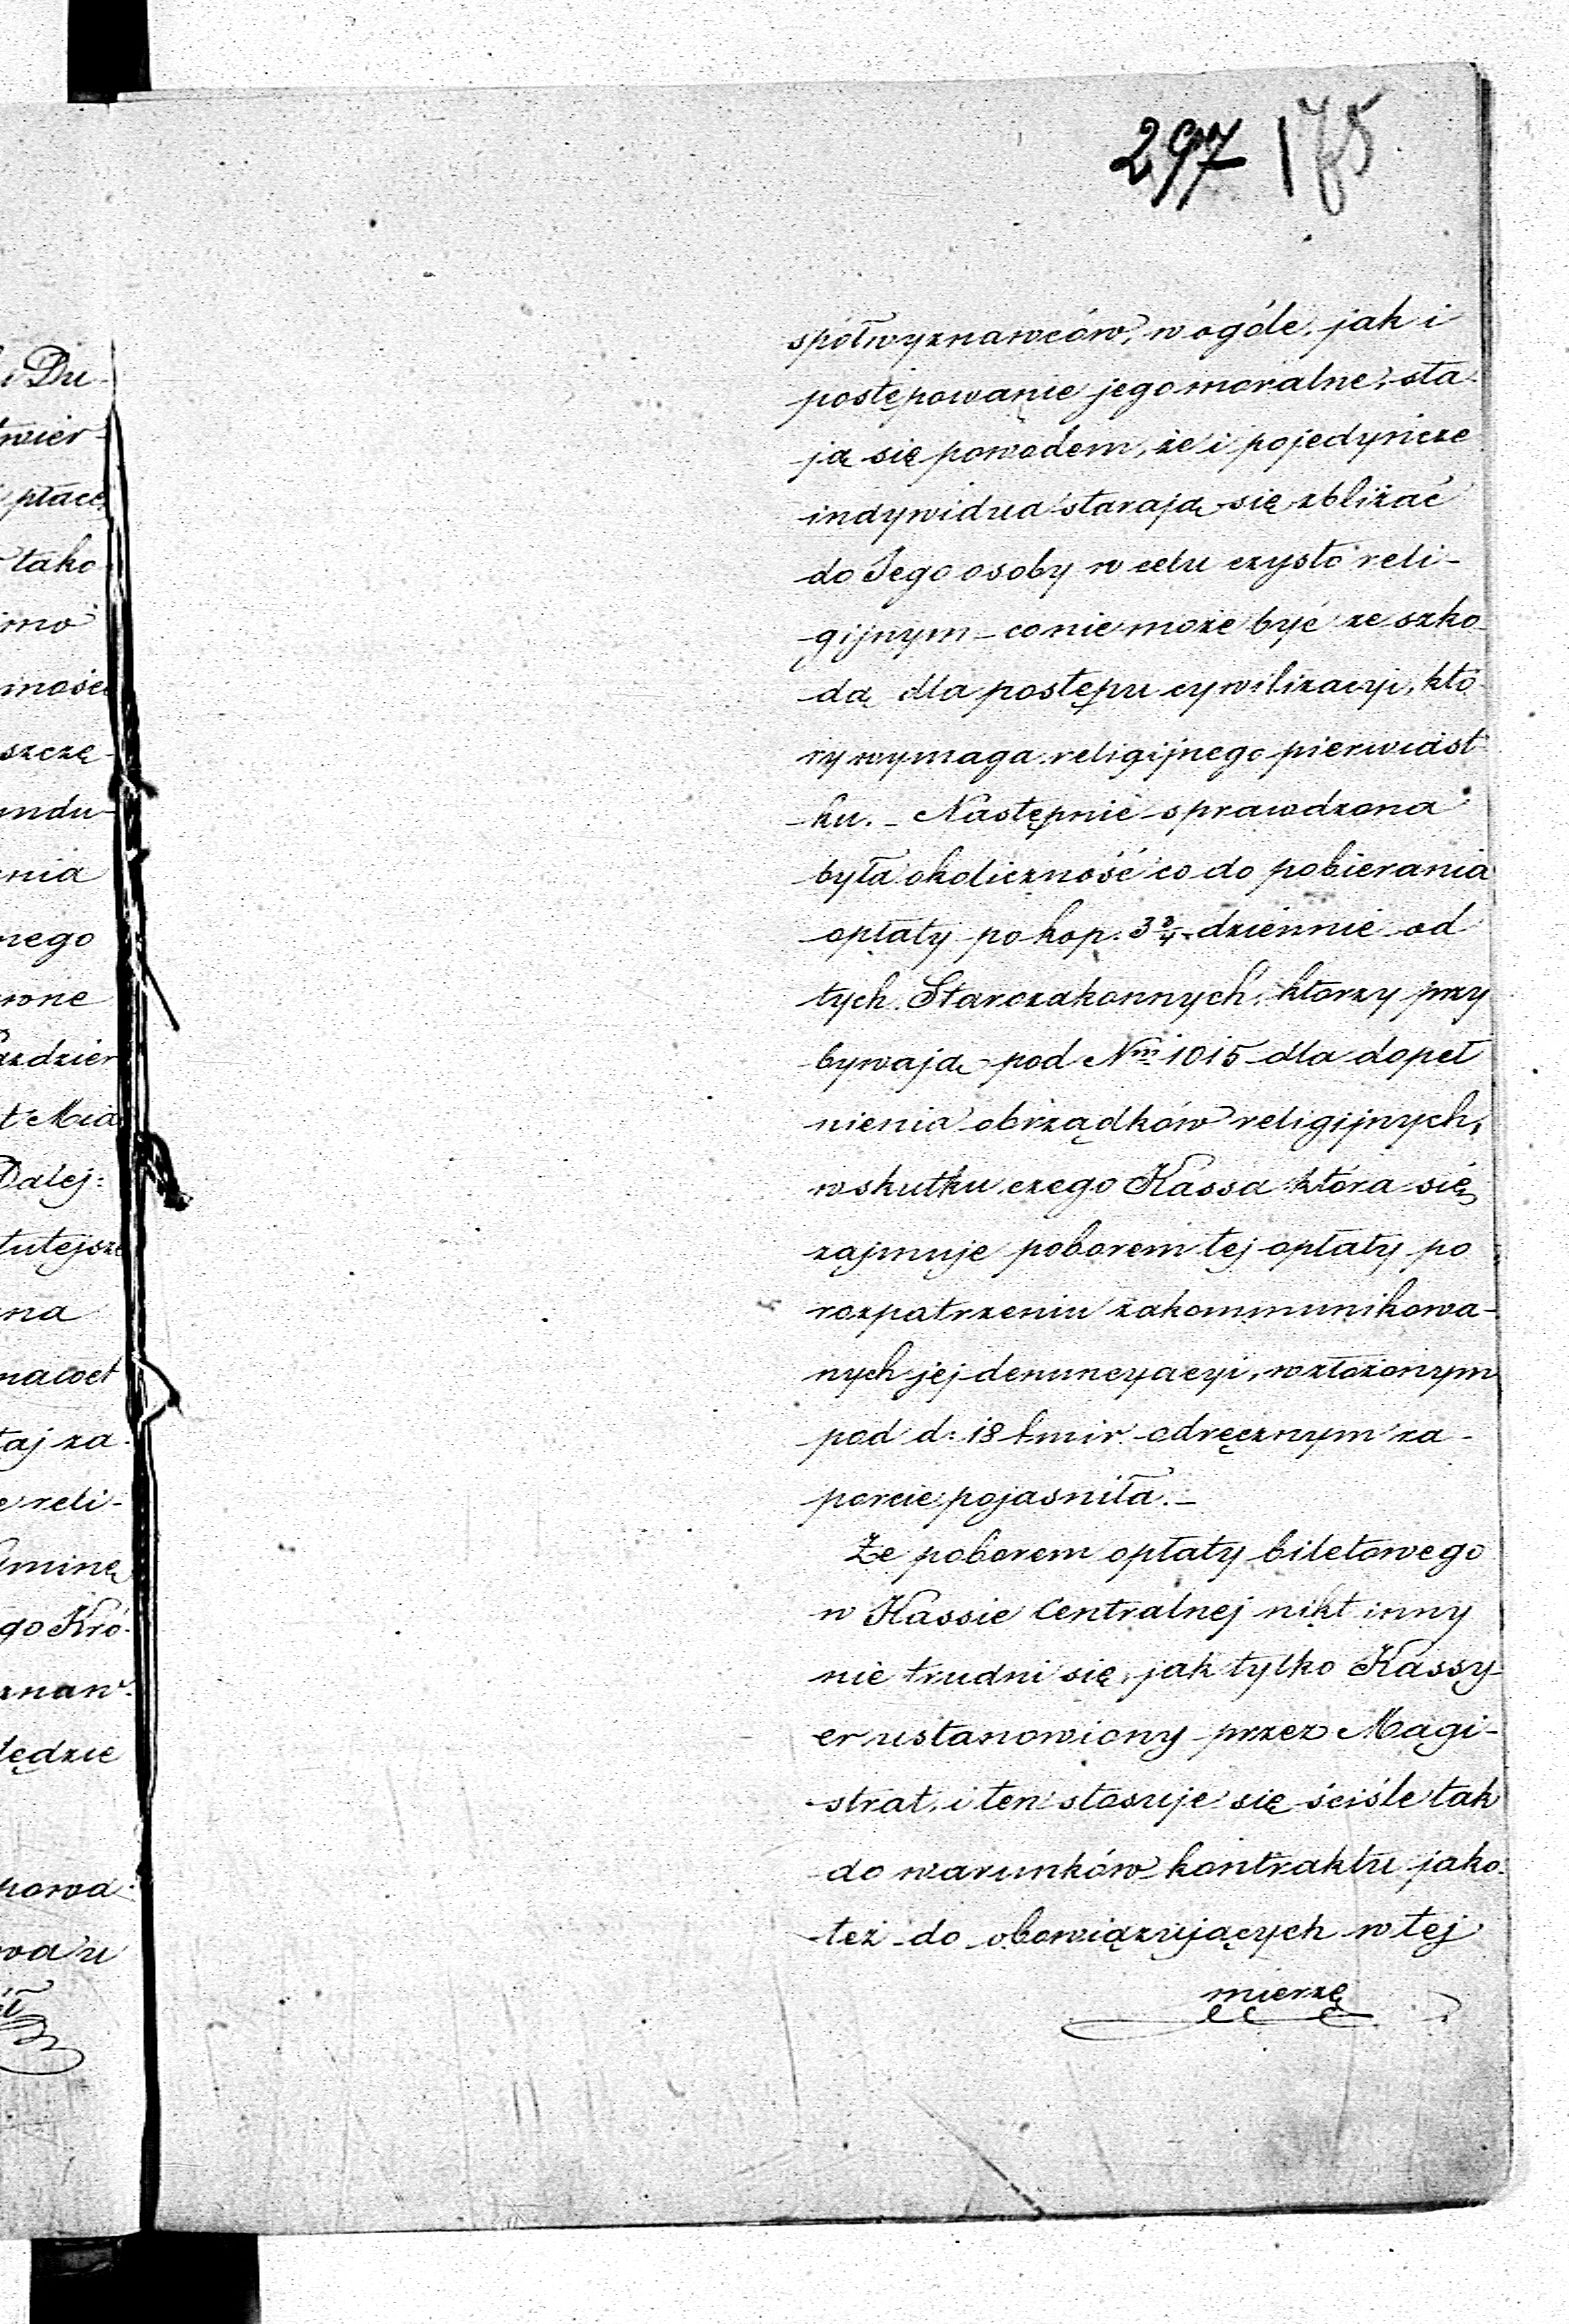 297 175
spółwyznawców, w ogóle, jak i
postępowanie jego moralne, sta-
ją się powodem, że i pojedyńcze
indywidua starają się zbliżać
do Jego osoby w celu czysto reli-
gijnym – co nie może być ze szko-
dą dla postępu cywilizacyi, któ-
ry wymaga religijnego pierwiast
ku. – Następnie sprawdzona
była okoliczność co do pobierania
opłaty po kop. 3 3/4 dziennie od
tych Starozakonnych, którzy przy
bywają pod Nm 1015 dla dopeł
nienia obrządków religijnych,
wskutku czego Kassa która się
zajmuje poborem tej opłaty po
rozpatrzeniu zakommunikowa-
nych jej denuncyacyi, w złożonym
pod d. 18 t. m i r. odręcznym ra-
porcie pojasniła. –
Że poborem opłaty biletowego
w Kassie Centralnej nikt inny
nie trudni się, jak tylko Kassy-
er ustanowiony przez Magi-
strat, i ten stosuje się ściśle tak
do warunków kontraktu jako-
też do obowiązujących w tej
mierzę
Du-
twier-
płace
tako
imo
szczę-
undu-
nia
nego
wone
aździer
t Mia
Dalej:
tutejsze
na
nawet
taj za-
e reli-
Gminę
go Kró-
znaw-
lędzie
powa-
wa u